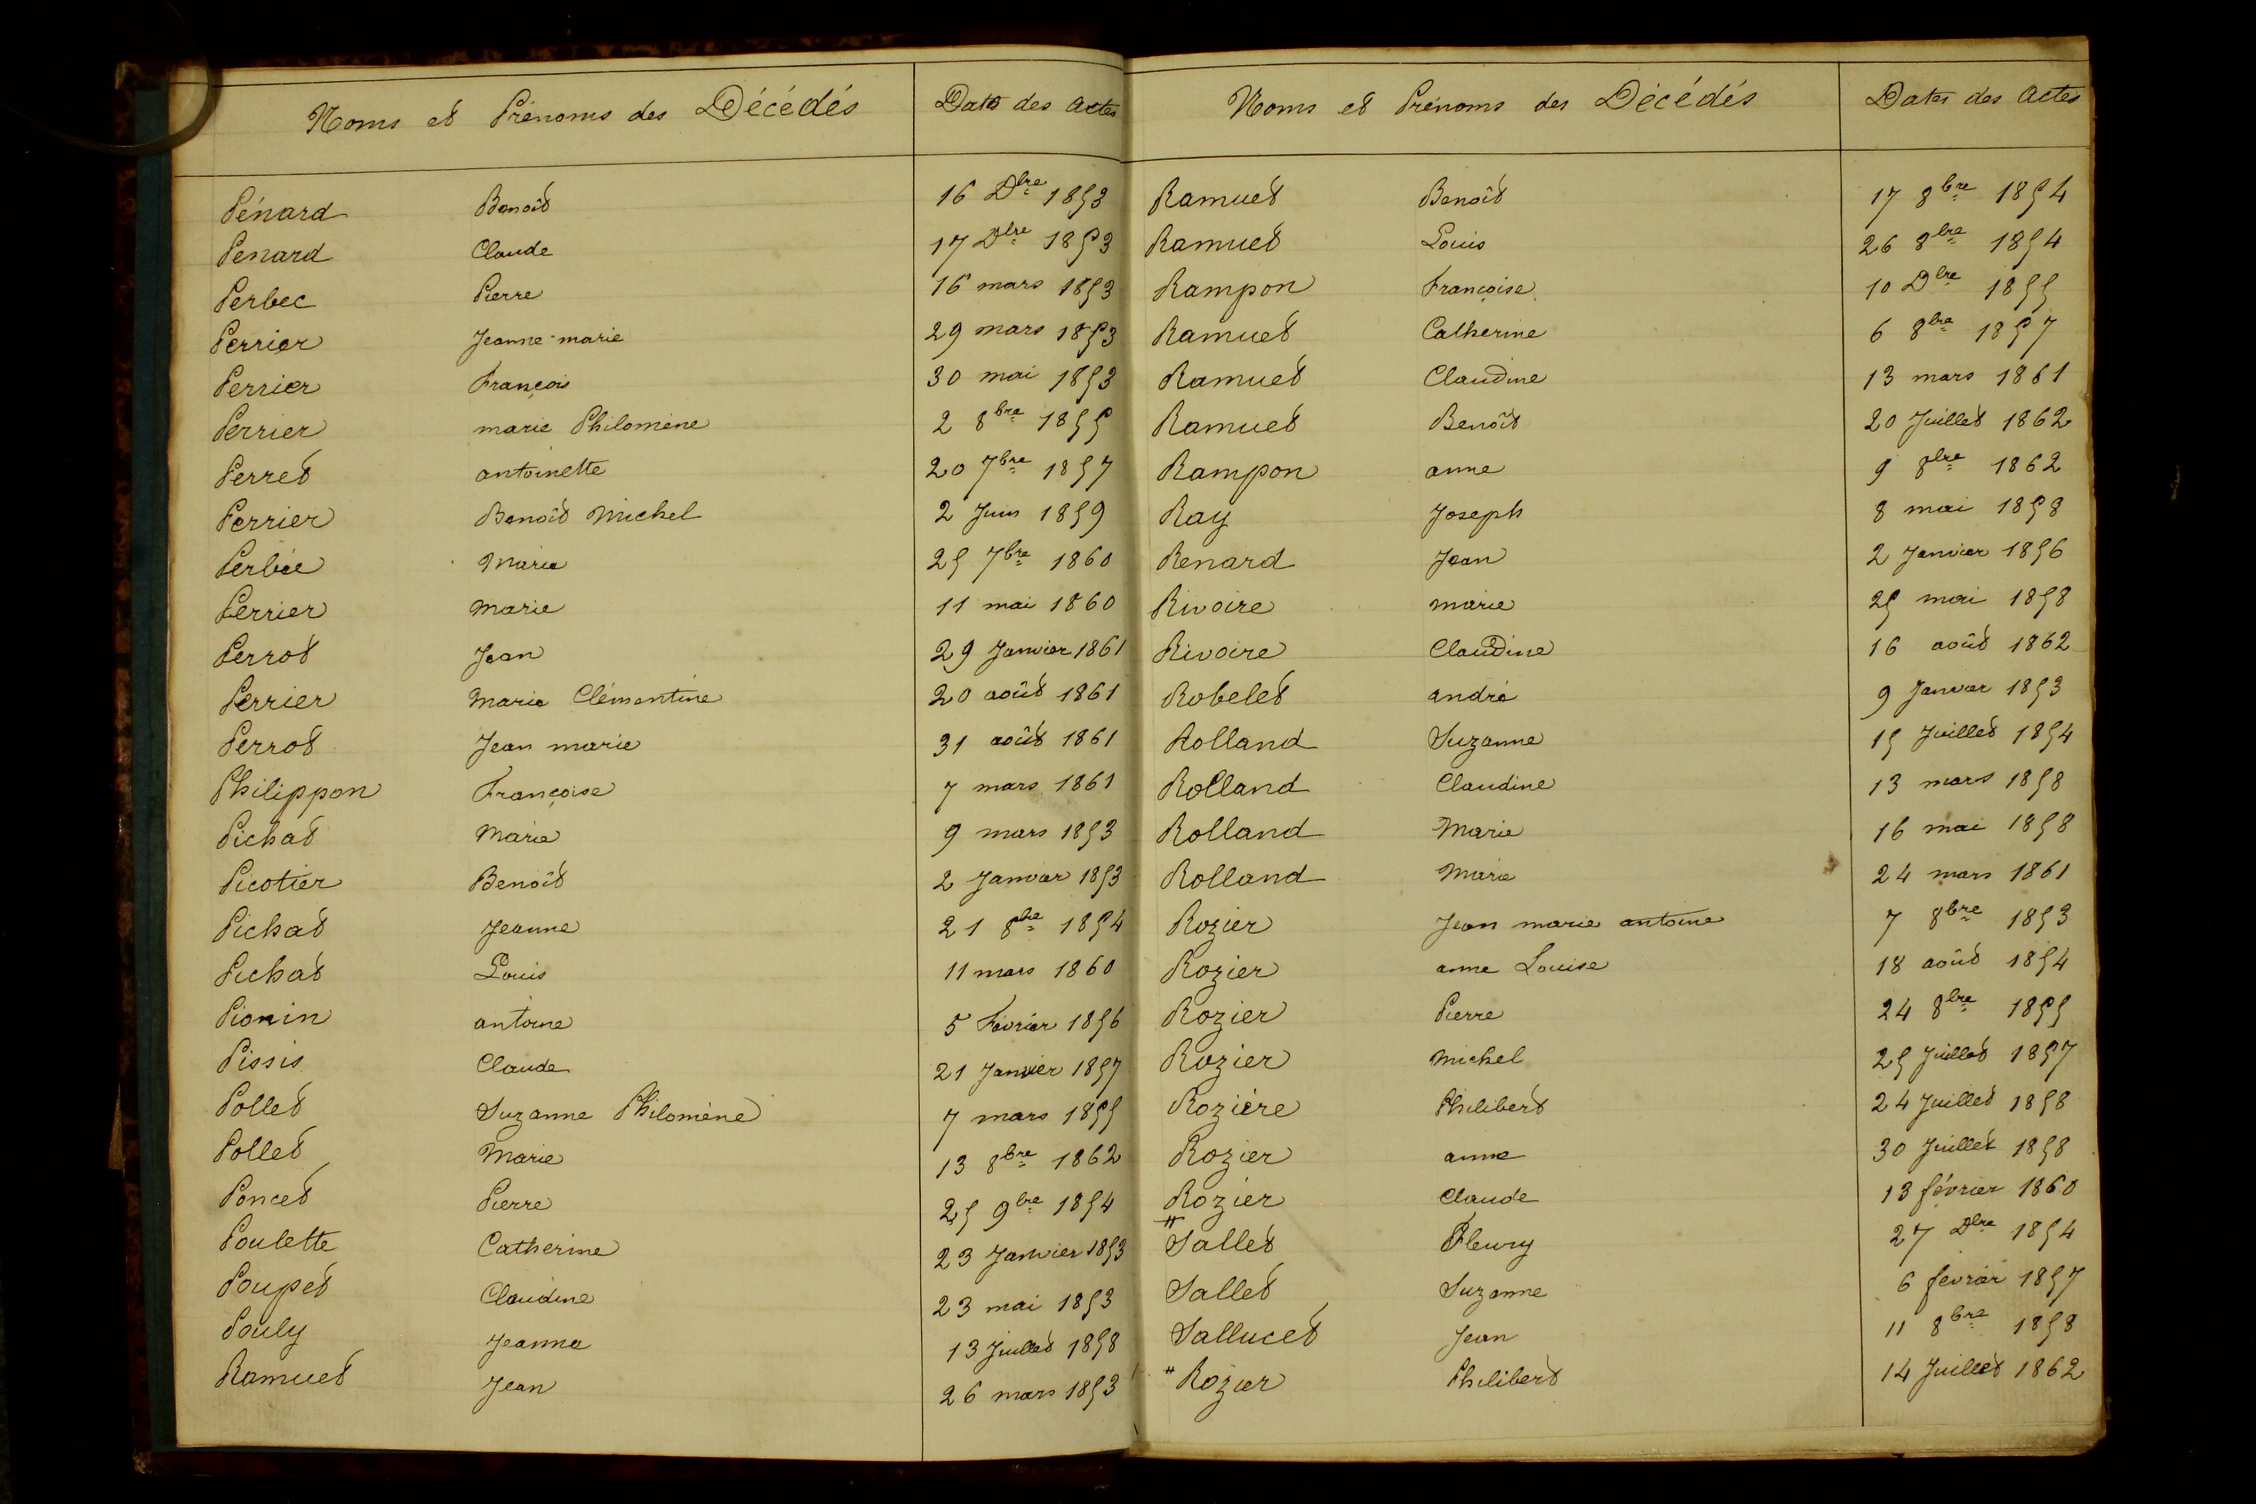 Noms et Prénoms des Décédés Dates des actes
Pénard Benoît 16 Dbre 1853
Penard Claude 17 Dbre 1853
Perbec Pierre 16 mars 1853
Perrier Jeanne-marie 29 mars 1853
Perrier François 30 mai 1853
Perrier marie Philomène 2 8bre 1855
Perret antoinette 20 7bre 1857
Perrier Benoît Michel 2 Juin 1859
Perbée Marie 25 7bre 1860
Perrier Marie 11 mai 1860
Perrot Jean 29 Janvier 1861
Perrier Marie Clémentine 20 août 1861
Perrot Jean marie 31 août 1861
Philippon Françoise 7 mars 1861
Pichat Marie 9 mars 1853
Picotier Benoît 2 Janvier 1853
Pichat Jeanne 21 8bre 1854
Pichat Louis 11 mars 1860
Pionin antoine 5 Février 1856
Pissis Claude 21 Janvier 1857
Pollet Suzanne Philomène 7 mars 1855
Pollet Marie 13 8bre 1862
Poncet Pierre 25 9bre 1854
Poulette Catherine 23 Janvier 1853
Poupet Claudine 23 mai 1853
Pouly Jeanne 13 Juillet 1858
Ramuet Jean 26 mars 1853
Noms et Prénoms des Décédés Dates des Actes
Ramuet Benoît 17 8bre 1854
Ramuet Louis 26 8bre 1854
Rampon Françoise 10 Dbre 1855
Ramuet Catherine 6 8bre 1857
Ramuet Claudine 13 mars 1861
Ramuet Benoît 20 Juillet 1862
Rampon anne 9 8bre 1862
Ray Joseph 8 mai 1858
Renard Jean 2 Janvier 1856
Rivoire marie 25 mai 1858
Rivoire Claudine 16 août 1862
Robelet andré 9 Janvier 1853
Rolland Suzanne 15 Juillet 1854
Rolland Claudine 13 mars 1858
Rolland Marie 16 mai 1858
Rolland Marie 24 mars 1861
Rozier Jean marie antoine 7 8bre 1853
Rozier anne Louise 18 août 1854
Rozier Pierre 24 8bre 1855
Rozier Michel 25 Juillet 1857
Rozière Philibert 24 Juillet 1858
Rozier anne 30 Juillet 1858
Rozier Claude 13 février 1860
Sallet Fleury 27 Dbre 1854
Sallet Suzanne 6 fevrier 1857
Sallucet Jean 11 8bre 1858
" Rozier Philibert 14 Juillet 1862